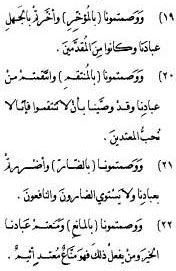 (١٩) ووصمتمونا (بالمؤخر) وأخرتم بالجهل
عبادنا وكانوا من المقدمين .
(٢٠) ووصمتمونا (بالمنتقم) وانتقمتم من
عبادنا وقد وصينا بألا تنتقموا فإنا لا
نحب المعتدين .
(٢١) ووصمتمونا (بالضار) وأضررتم
بعبادنا ولا يستوي الضارون والنافعون .
(٢٢) ووصمتمونا (بالمانع) ومنعتم عبادنا
الخير ومن يفعل ذلك فهو مناع معتد أثيم .